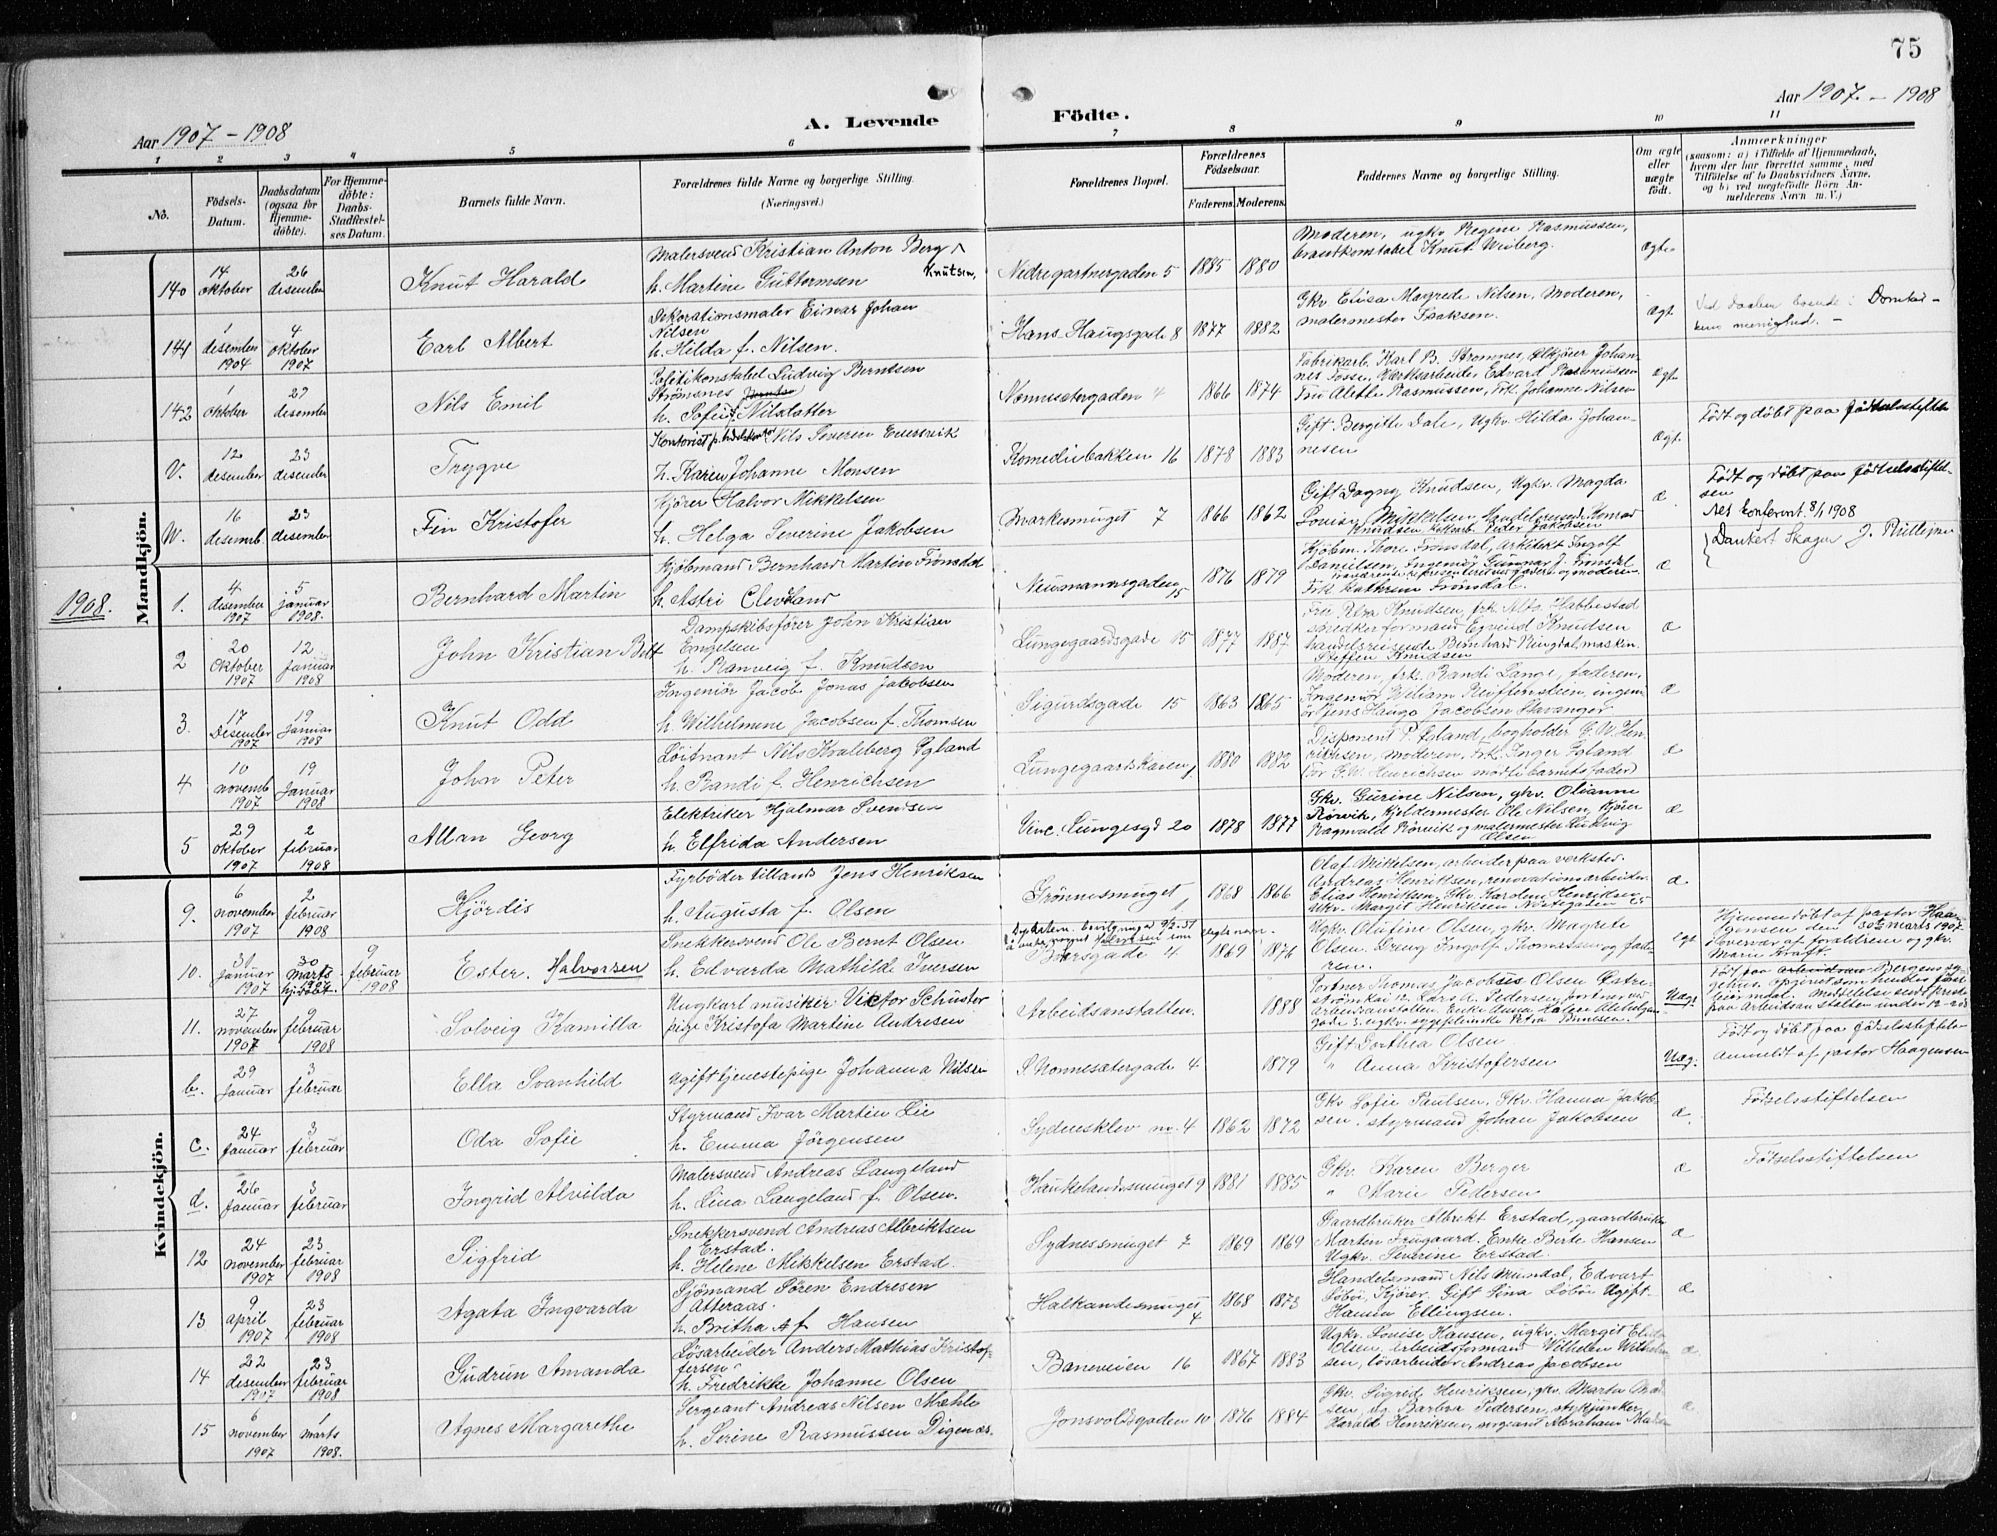 75
Aar 1907 - 1908
A. Levende
Födte.
Aar 1907 - 1908
1 2 3 4 5 6 7 8 9 10 11
No.
Födsels-
Datum.
Daabsdatum
(ogsaa for
Hjemme-
döbte).
For Hjemme-
döbte:
Daabs-
Stadfæstel-
ses Datum.
Barnets fulde Navn.
Forældrenes fulde Navne og borgerlige Stilling.
(Næringsvei.)
Forældrenes Bopæl.
Forældrenes
Födselsaar.
Faderens. Moderens.
Faddernes Navne og borgerlige Stilling.
Om ægte
eller
uægte
födt.
Anmærkninger
(saasom: a) i Tilfælde af Hjemmedaab,
hvem der har forrettet samme, med
Tilföielse af to Daabsvidners Navne,
og b) ved uægtefödte Börn An-
melderens Navn m. V.)
Mandkjön.
140
14
oktober
26
desember
Knut Harald
Malersvend Kristian Anton Berg
Knutsen,
h. Martine Guttormsen
Nedregartnergaden 5
1885 1880
Moderen, ugkv Regine Rasmussen,
brandkonstabel Knut Wiberg.
Ægte
141
1
desember
1904
4
oktober
1907
Earl Albert
Dekorationsmaler Einar Johan
Nilsen
h. Hilda f. Nilsen.
Hans Haugsgade 8
1877 1882
Gkv Elisa Magrede Nilsen, Moderen,
malermester Isaksen.
Ægt
Ved daaben boende i Domkir-
kens menighed. -
142
1
oktober
27
desember
Nils Emil
Politikonstabel Ludvig Berntsen
Strømsnes
h. Sofie f. Nilsdatter
Nonnesætergaden 4
1866 1874
Fabrikarb. Karl B. Strømnes, Ølkjører Johan-
nes Fosse, Værktsarbeider Edvard Rasmussen
Fru Alette Rasmussen, Frk. Johanne Nilsen
Ægte
V.
12
desember
23
desember
Trygve
Nils Severin Evensvik
h. Karen Johanne Monsen
Komediebakken 16
1878 1883
Gift Bergitte Dale, Ugkv. Hilda Johan-
nesen
Ægte
Født og døbt paa fødselsstiftelsen
W.
16
desemb.
23
desember
Fin Kristofer
Kjører Halvor Mikkelsen
h. Helga Severine Jakobsen
Markesmuget 7
1866 1862
Gift Dagny Knudsen, Ugkv. Magda
Louise Mikkelsen Handelsreisende Konrad
Knudsen, Peder Jakobsen
æ
Født og døbt paa fødselsstiftel-
sen
Ret konfereret 8/1 1908
Dankert Skagen J. Rullejne
1908.
1.
4
desember
1907
5
januar
1908.
Bernhard Martin
Kjøbmand Bernhard Martin Frønsdal
h. Astri Cleveland
Neumannsgaden
15
1876 1879
Kjøbm. Thore Frønsdal, Arkitekt Ingolf
Danielsen, Ingeniør Gunnar J. Frønsdal
Frk Kathrine Frønsdal.
æ
2
20
Oktober
1907
12
Januar
1908
John Kristian Bett
Dampskibsfører John Kristian
Engelsen
h. Ranveig f. Knudsen
Lungegaardsgade 15
1877 1887
Fru Petra Knudsen, frk. Alto Habbestad
snedkerformand Eyvind Knudsen
handelsreisende Bernhard Ningdal, maskin.
Steffen Knudsen
æ
3.
17
Desember
1907
19
Januar
1908
Knut Odd
Ingeniør Jacob Jonas Jacobsen
h. Wilhelmine Jacobsen f. Thomsen
Sigurdsgade 15
1863 1865
Moderen, frk. Randi Lange, faderen,
Ingeniør William Reiffenstein, ingeni-
ør Jens Haugo Jacobsen Stavanger
æ
4
10
novemb
1907
19
Januar
1908
John Peter
Løitnant Nils Kvaleberg Egland
h. Randi f. Henrichsen
Lungegaardskaien 1
1880 1882
Disponent P. Egland, bogholder G.W. Hen-
richsen, moderen, Frk. Inger Egland
(For G.W. Henrichsen mødte barnets fader)
æ
5
29
oktober
1907
2
februar
1908
Allan Georg
Elektriker Hjalmar Svendsen
h. Elfrida Andersen
Vinc. Lungesgd 20
1878 1877
Gkv. Gurine Nilsen, gkv. Olianne
Rørvik, Kjeldermester Ole Nilsen, Kjører
Ragnvald Rørvik og malermester Ludvig
Olsen
æ
Kvindekjön.
9.
6
november
1907
2
februar
1908
Hjördis
Fyrbøder tillands Jens Henriksen
h. Augusta f. Olsen
Grønnesmuget 1
1868 1866
Olaf Mikkelsen, arbeider paa verksted.
Andreas Henriksen, renovationsarbeider
Elias Henriksen, Gkv. Karoline Henriksen
Ugkv. Margit Henriksen Nøstegaten 25
æ
10.
31
Januar
1907
30
Marts
1907
hj.døbt
9
februar
1908
Ester. Halvorsen
Snekkersvend Ole Bernt Olsen
h. Edvarda Mathilde Iversen
Baarsgade 4
1869 1876
Ugkv. Olufine Olsen, gkv. Magrete
Olsen. Dreng Ingolf Thomassen og fade-
ren.
Egt
Hjemmedøbt af pastor Haa-
gensen den 30te marts 1907.
Overvar af forældrene og gkv.
Marie Kraft.
11.
27
november
1907
9
februar
1908
Solveig Kamilla
Ungkarl musiker Victor Schuster
pige Kristofa Martine Andresen
Arbeidsanstalten.
1888
Portner Thomas Jacobus Olsen
Uægt
b.
29
Januar
3
februar
Ella Svanhild
Ugift tjenestepige Johanna Nilsen
S. Nonnesætergade 4
1879
Gift Dorthea Olsen
" Anna Kristofersen
Uæg.
Født og døbt paa fødselsstiftelsen
anmeldt af pastor Haagensen
c.
24
Januar
3
februar
Oda Sofie
Styrmand Ivar Martin Lie
h. Emma Jörgensen
Sydnesklev no. 4
1862 1872
Gkv Sofie Paulsen, Gkv. Hanna Jakob-
sen, styrmand Johan Jakobsen
æ
Fødselsstiftelsen
d.
26
Januar
3
februar
Ingrid Alvilda
Malersvend Andreas Langeland
h. Lina Langeland f. Olsen.
Haukelandsmuget 9
1881 1885
Gkv. Karen Berger
" Marie Pedersen
æ
Fødselsstiftelsen
12
24
november
1907
23
februar
1908
Sigfrid
Snekkersvend Andreas Albriktsen
Erstad.
h. Helene Mikkelsen Erstad.
Sydnessmuget 7
1869 1869
Gaardbruker Albrekt Erstad, gaardbruker
Martin Frugaard. Enke Berte Hansen
Ugkv. Severine Erstad.
æ
13
9
april
1907
23
februar
1908
Agata Ingvarda
Sjömand Sören Endresen
Atteraas.
h. Britha A f Hansen
Halkandesmuget
4
1868 1873
Handelsmand Nils Mundal, Edvart
Løbø, Kjører. Gift Lina Løbø Ugift
Hanna Ellingsen.
æ
14
22
desember
1907
23
februar
1908
Gudrun Amanda
Løsarbeider Anders Mathias Kristof-
fersen
h. Fredrikke Johanne Olsen
Baneveien 16
1867 1883
Ugkv. Louise Hansen, ugkv. Margit
Olsen, arbeidsformand Wilhelm Wilhelm-
sen, løsarbeider Andreas Jacobsen
æ
15
6
november
1907
1
marts
1908.
Agnes Margarethe
Sergeant Andreas Nilsen Mæhle
h. Serine Rasmussen Digenæs.
Jonsvoldsgaden 10
1876 1884
Gkv. Sigrid Henriksen, gkv. Marta Mad-
sen, ug Barbra Pedersen, stykjunker
Harald Henriksen, sergeant Abraham Madsen
æ